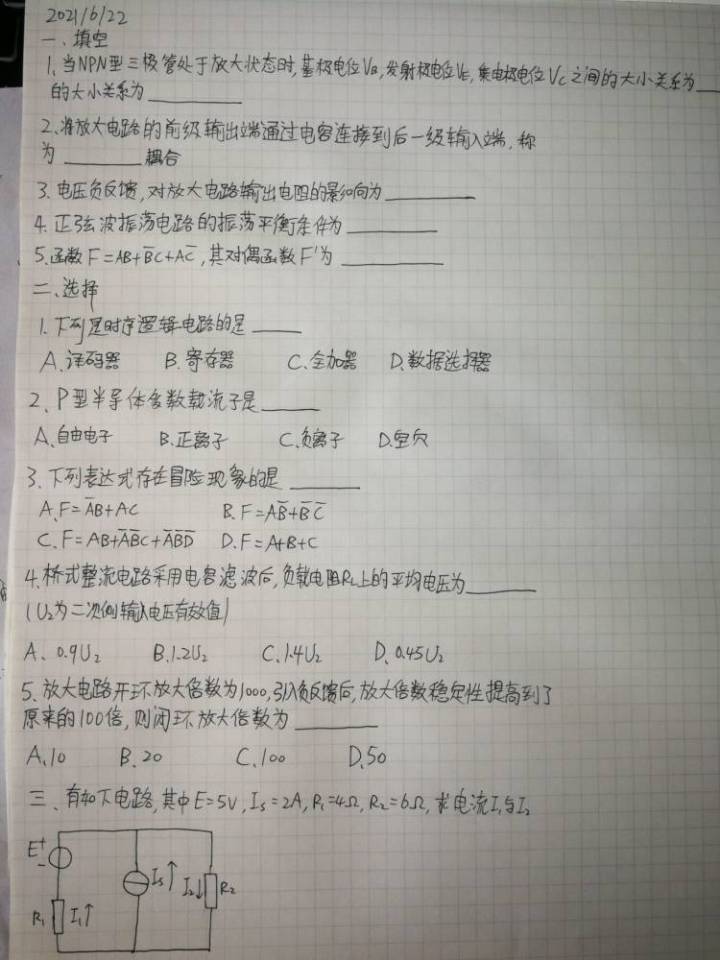 2021/6/22
一、填空
1、当NPN型三极管处于放大状态时,基极电位VB,发射极电位VE,集电极电位VC之间的大小关系为___
的大小关系为_________
2、将放大电路的前级输出端通过电容连接到后一级输入端,称
为________耦合
3、电压负反馈,对放大电路输出电阻的影响为_________
4、正弦波振荡电路的振荡平衡条件为_________
5、函数F=AB+B̅C+AC̅,其对偶函数F'为_________
二、选择
1、下列是时序逻辑电路的是_____
A、译码器 B、寄存器 C、全加器 D、数据选择器
2、P型半导体多数载流子是______
A、自由电子 B、正离子 C、负离子 D、空穴
3、下列表达式存在冒险现象的是_______
A、F=A̅B+AC B、F=AB̅+B̅C̅
C、F=AB+A̅B̅C+A̅B̅D̅ D、F=A+B+C
4、桥式整流电路采用电容滤波后,负载电阻RL上的平均电压为_______
(U2为二次侧输入电压有效值)
A、0.9U2 B、1.2U2 C、1.4U2 D、0.45U2
5、放大电路开环放大倍数为1000,引入负反馈后,放大倍数稳定性提高到了
原来的100倍,则闭环放大倍数为________
A、10 B、20 C、100 D、50
三、有如下电路,其中E=5V,Is=2A,R1=4Ω,R2=6Ω,求电流I1与I2
E + -
Is↑ I2↓ R2
R1 I1↑